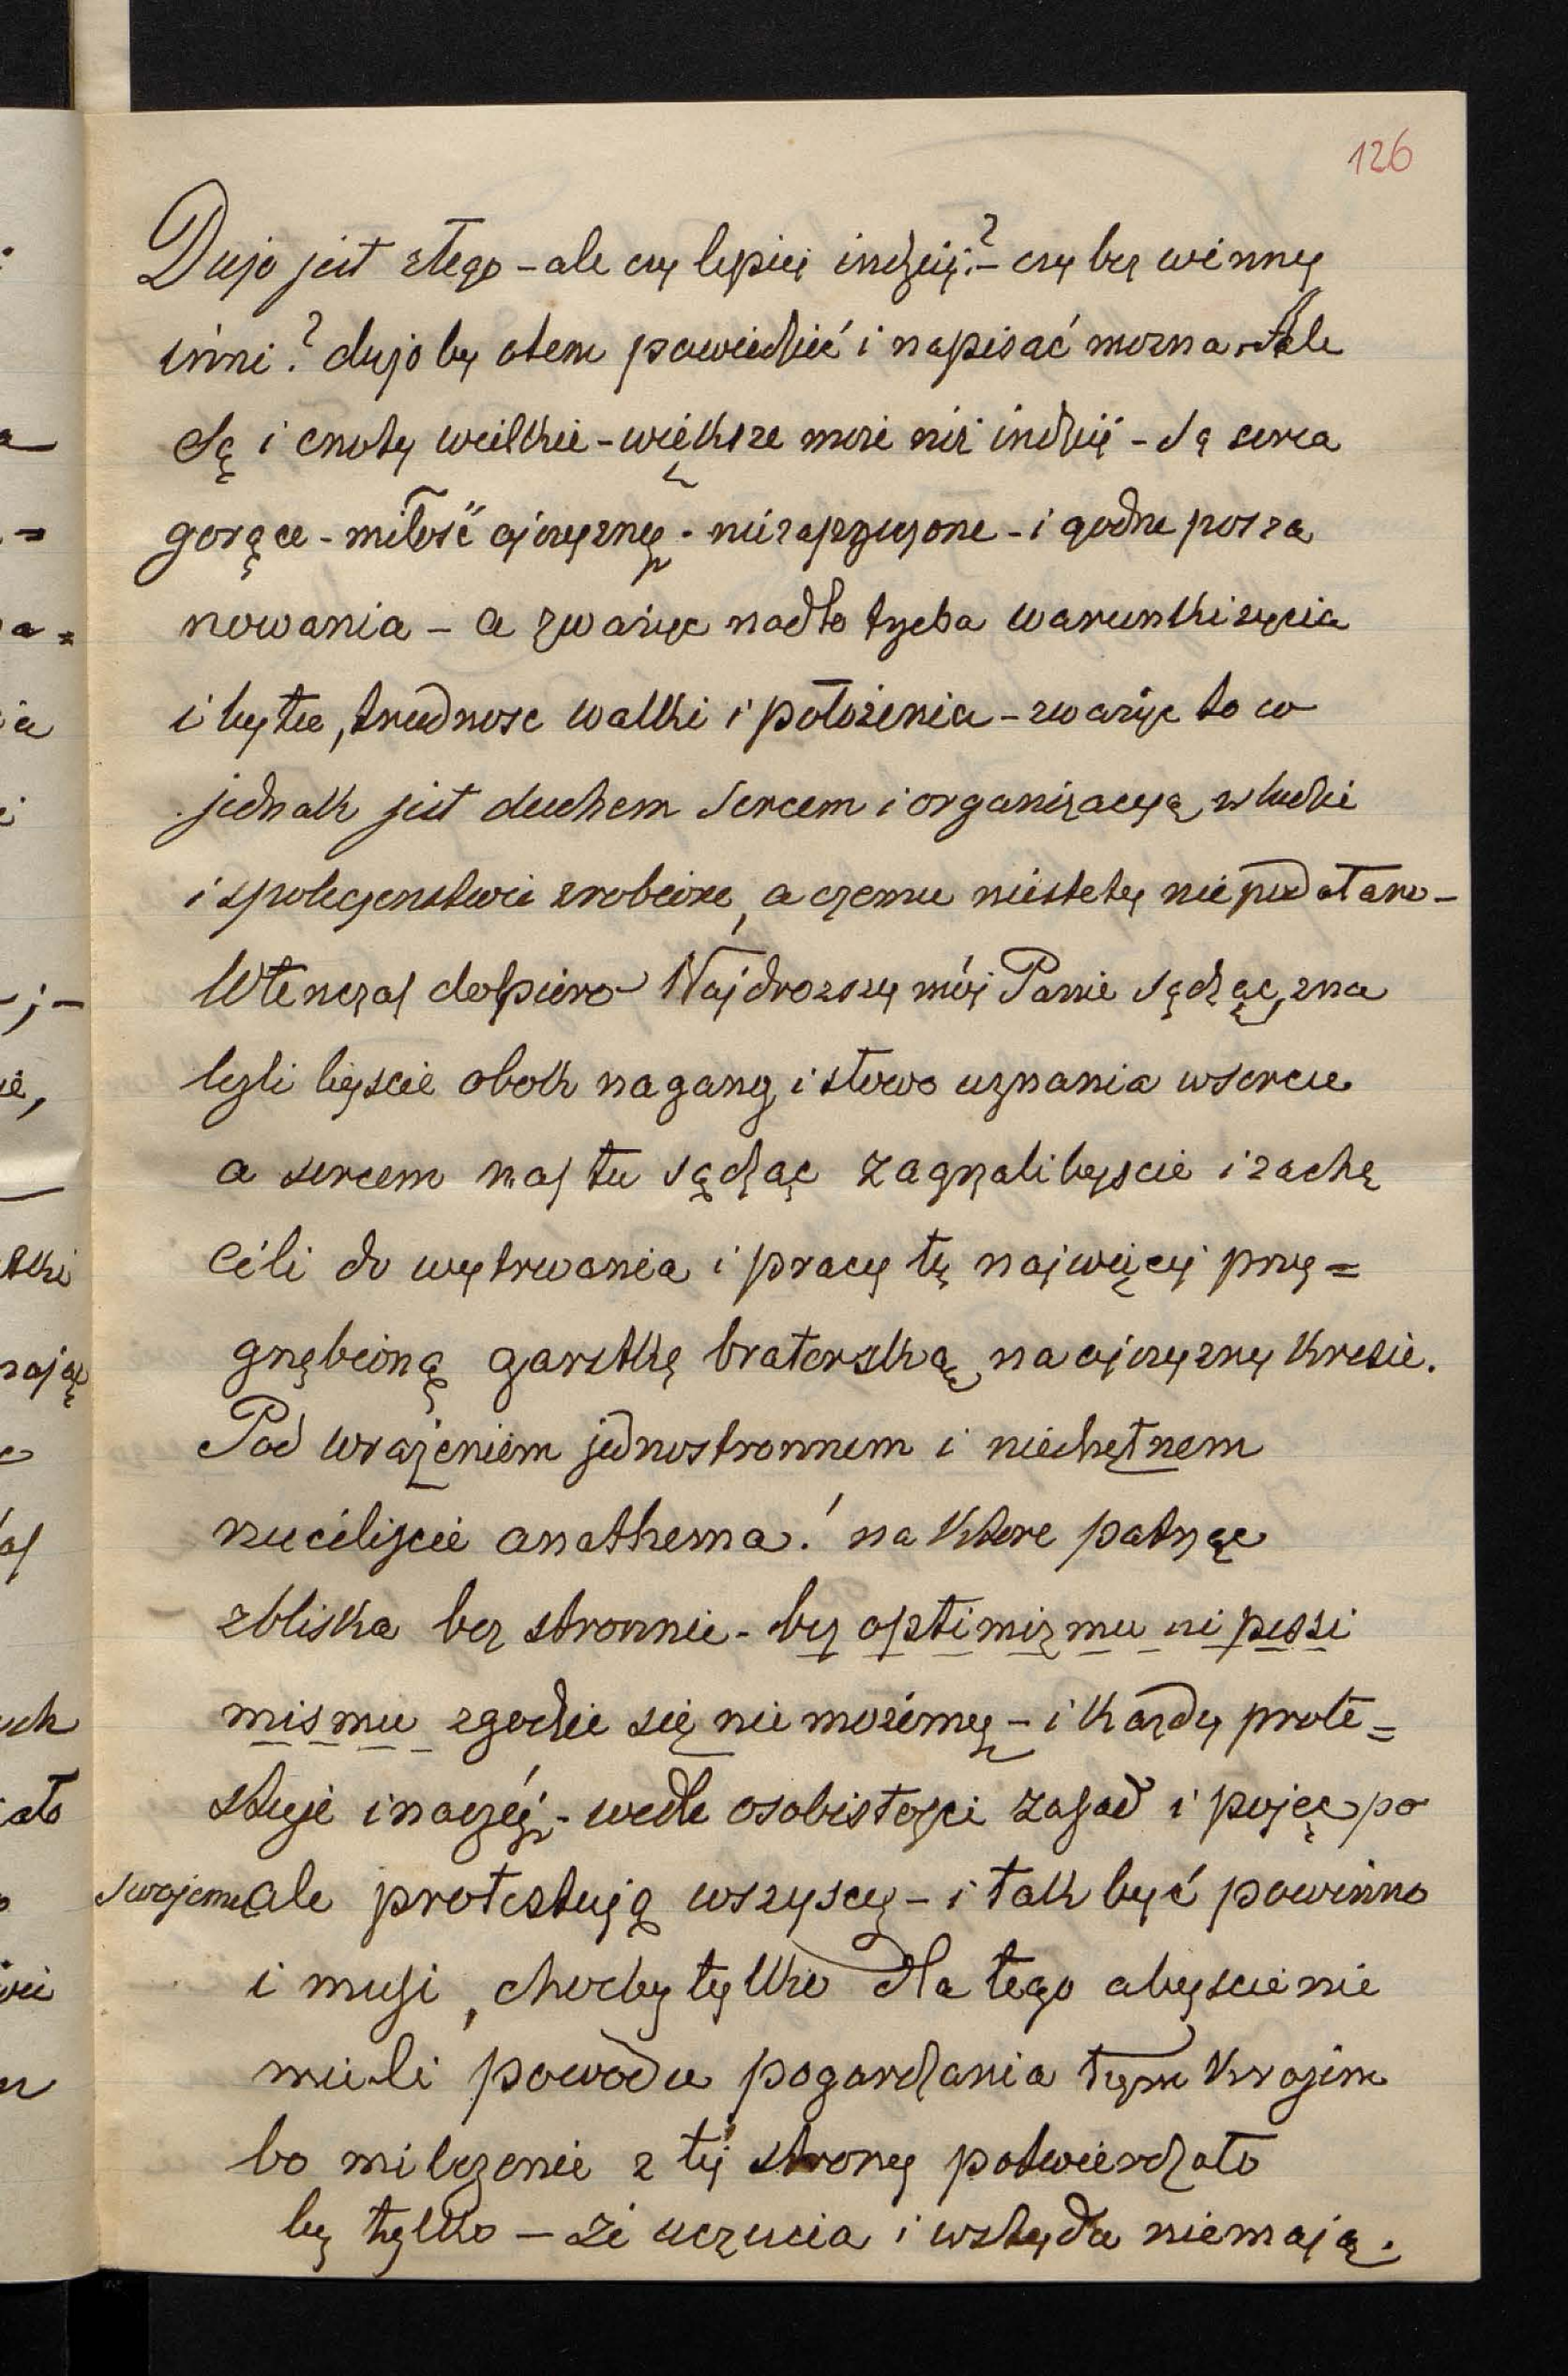 126
Dużo jest złego - ale czy lepiej indziej? - czy bez winny
inni? dużo by otem powiedzieć i napisać mozna. Ale
Są i cnoty wielkie - większe może niż indziej - Są serca
gorące - miłość ojczyzny - niezaprzeczone - i godne posza
nowania - a zważyc nadto trzeba warunki zycia
i bytu, trudnosc walki i położenia - zważyc to co
jednak jest duchem Sercem i organizacyą w ludzie
i spoleczenstwie zrobione, a czemu niestety nie podołano -
Wtenczas dopiero Najdrozszy mój Panie sądząc, zna
lezli byscie obok nagany i słowo uznania w sercu
a sercem nas tu sądząc zagrzali byscie i zachę
cili do wytrwania i pracy tę najwięcej przy=
gnębioną garstkę braterską na ojczyzny Kresie.
Pod wrażeniem jednostronnem i niechętnem
rzuciliście anathema! na Ktore patrząc
zbliska bez stronnie - bez optimizmu ni pessi
mismu zgodzic się nie możemy - i Każdy prote=
stuje inaczéj - wedle osobistości zasad i pojęć po
swojemu ale protestują wszyscy - i tak być powinno
i musi, chocby tylko dla tego abyscie nie
mieli powodu pogardzania tym Krajem
bo milczenie z tej strony potwierdzało
by tylko - że uczucia i wstydu niemają.